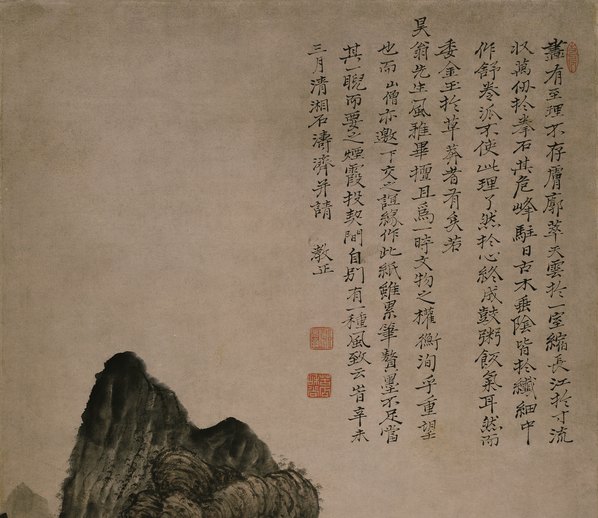 畫有至理不存膚廓萃天雲於一室縮長江於寸流
収萬仞於拳石其危峰駐日古木垂陰皆於纖細中
作舒卷派不使此理了然於心終成鼓粥飯氣耳然而
委金玉於草莽者有矣若
昊翁先生風雅畢擅且為一時文物之權衡洵乎重望
也而山僧亦邀下交之誼緣作此紙雖累筆贅墨不足當
其一睨而要之煙霞投契間自別有一種風致云峕辛未
三月清湘石濤濟并請 教正